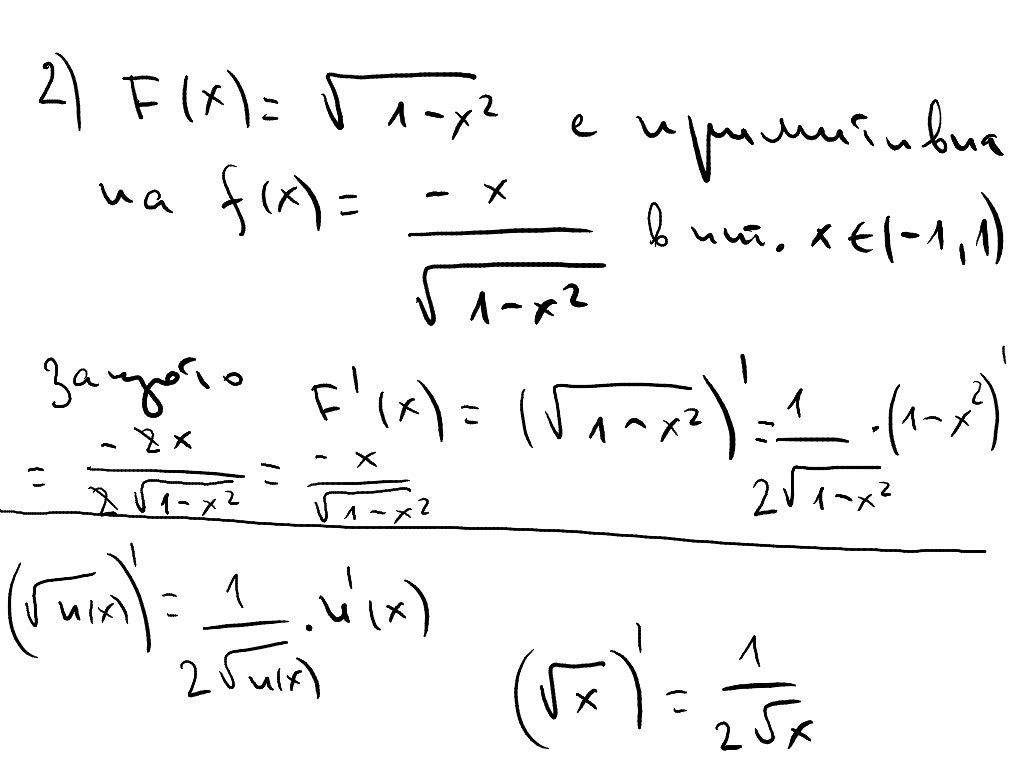 2) F(x) = √(1-x²) е примитивна
на f(x) = -x / √(1-x²) в инт. x ∈ (-1, 1)
защото F'(x) = (√(1-x²))' = 1 / (2√(1-x²)) · (1-x²)'
= -2x / (2√(1-x²)) = -x / √(1-x²)
(√u(x))' = 1 / (2√u(x)) · u'(x)
(√x)' = 1 / (2√x)